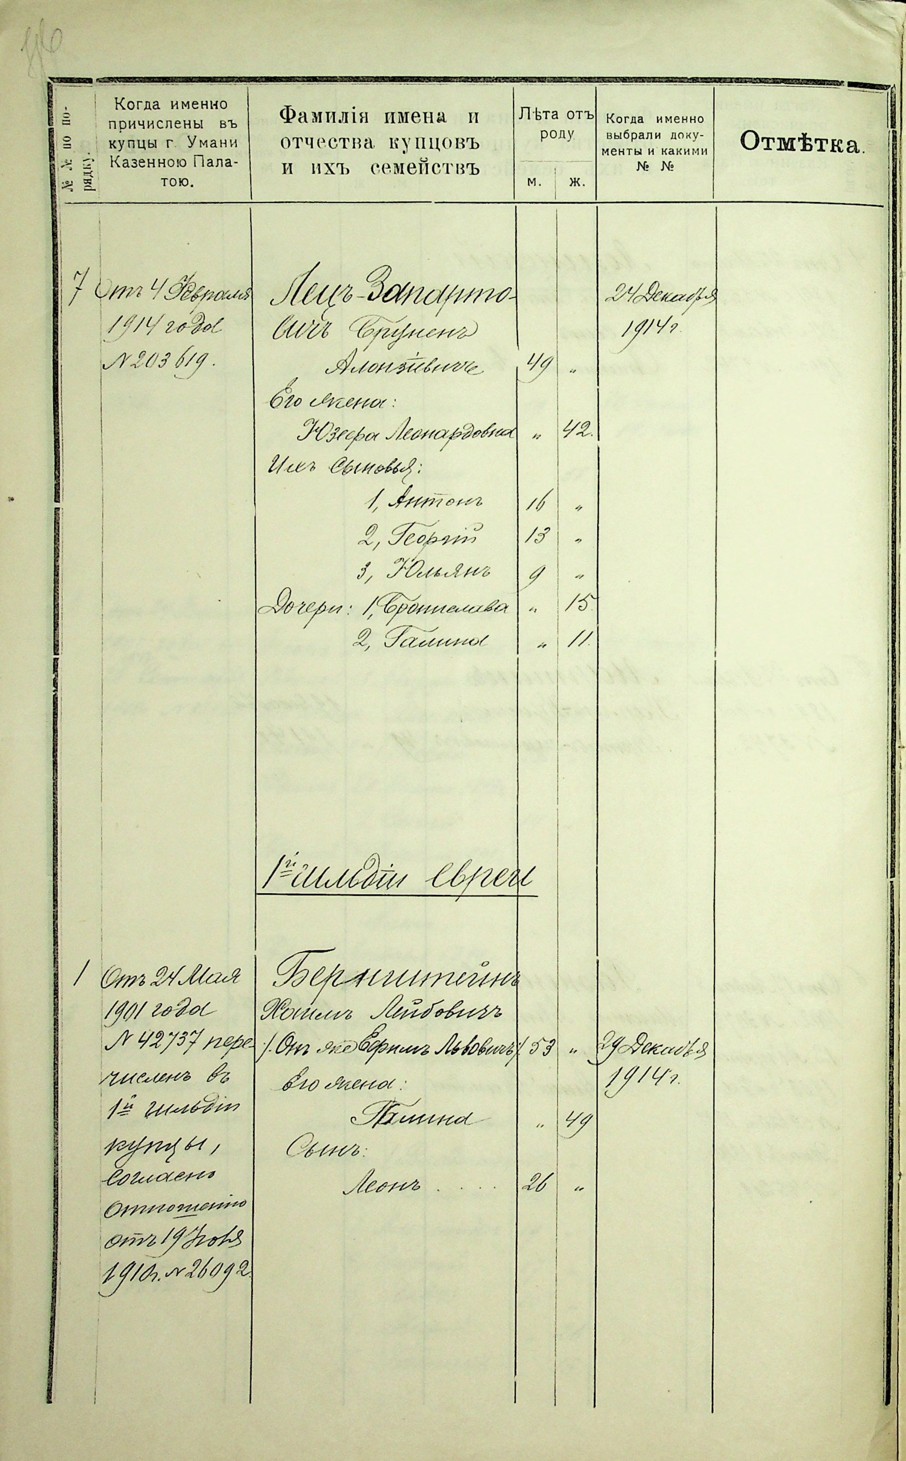 № № по по-
рядку.
Когда именно
причислены въ
купцы г. Умани
Казенною Пала-
тою.
Фамилія имена и
отчества купцовъ
и ихъ семействъ
Лѣта отъ
роду
м. ж.
Когда именно
выбрали доку-
менты и какими
№ №
Отмѣтка.
7 Отъ 4 Февраля
1914 года
№ 203619.
Лецъ-Запарто-
вичъ Брунонъ
Алоизіевичъ 49 „
24 Декабря
1914 г.
Его жена:
Юзефа Леонардовна „ 42.
Ихъ сыновья:
1, Антонъ 16 „
2, Георгій 13 „
3, Юльянъ 9 „
Дочери: 1, Бронислава „ 15
2, Галина „ 11.
1й гильдіи Евреи
1 Отъ 24 Мая
1901 года
№ 42737 пере-
численъ въ
1й гильдіи
купцы,
согласно
отношенію
отъ 19 Ноября
№ 26092.
Бернштейнъ
Хаимъ Лейбовичъ
/. Онъ же Ефимъ Львовичъ/ 53 „
29 Декабря
1914 г.
Его жена:
„ 49
Сынъ:
Леонъ . . . . 26 „